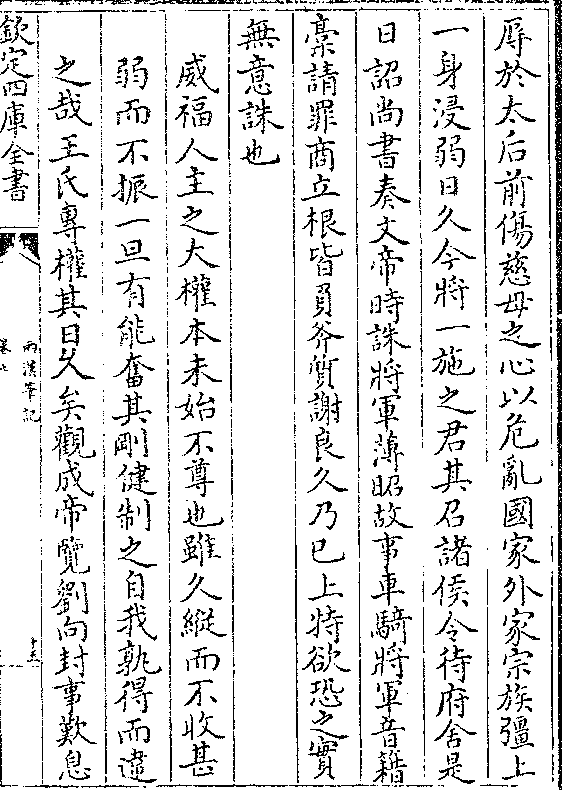 辱於太后前傷慈母之心以危亂國家外家宗族彊上
一身浸弱日久今將一施之君其召諸侯令待府舍是
日詔尚書奏文帝時誅將軍薄昭故事車騎將軍音籍
稾請罪商立根皆負斧質謝良久乃已上特欲恐之實
無意誅也
威福人主之大權本未始不尊也雖久縱而不收甚
弱而不振一旦有能奮其剛健制之自我孰得而違
之哉王氏專權其日久矣觀成帝覽劉向封事歎息
欽定四庫全書
兩漢筆記
卷七
十三